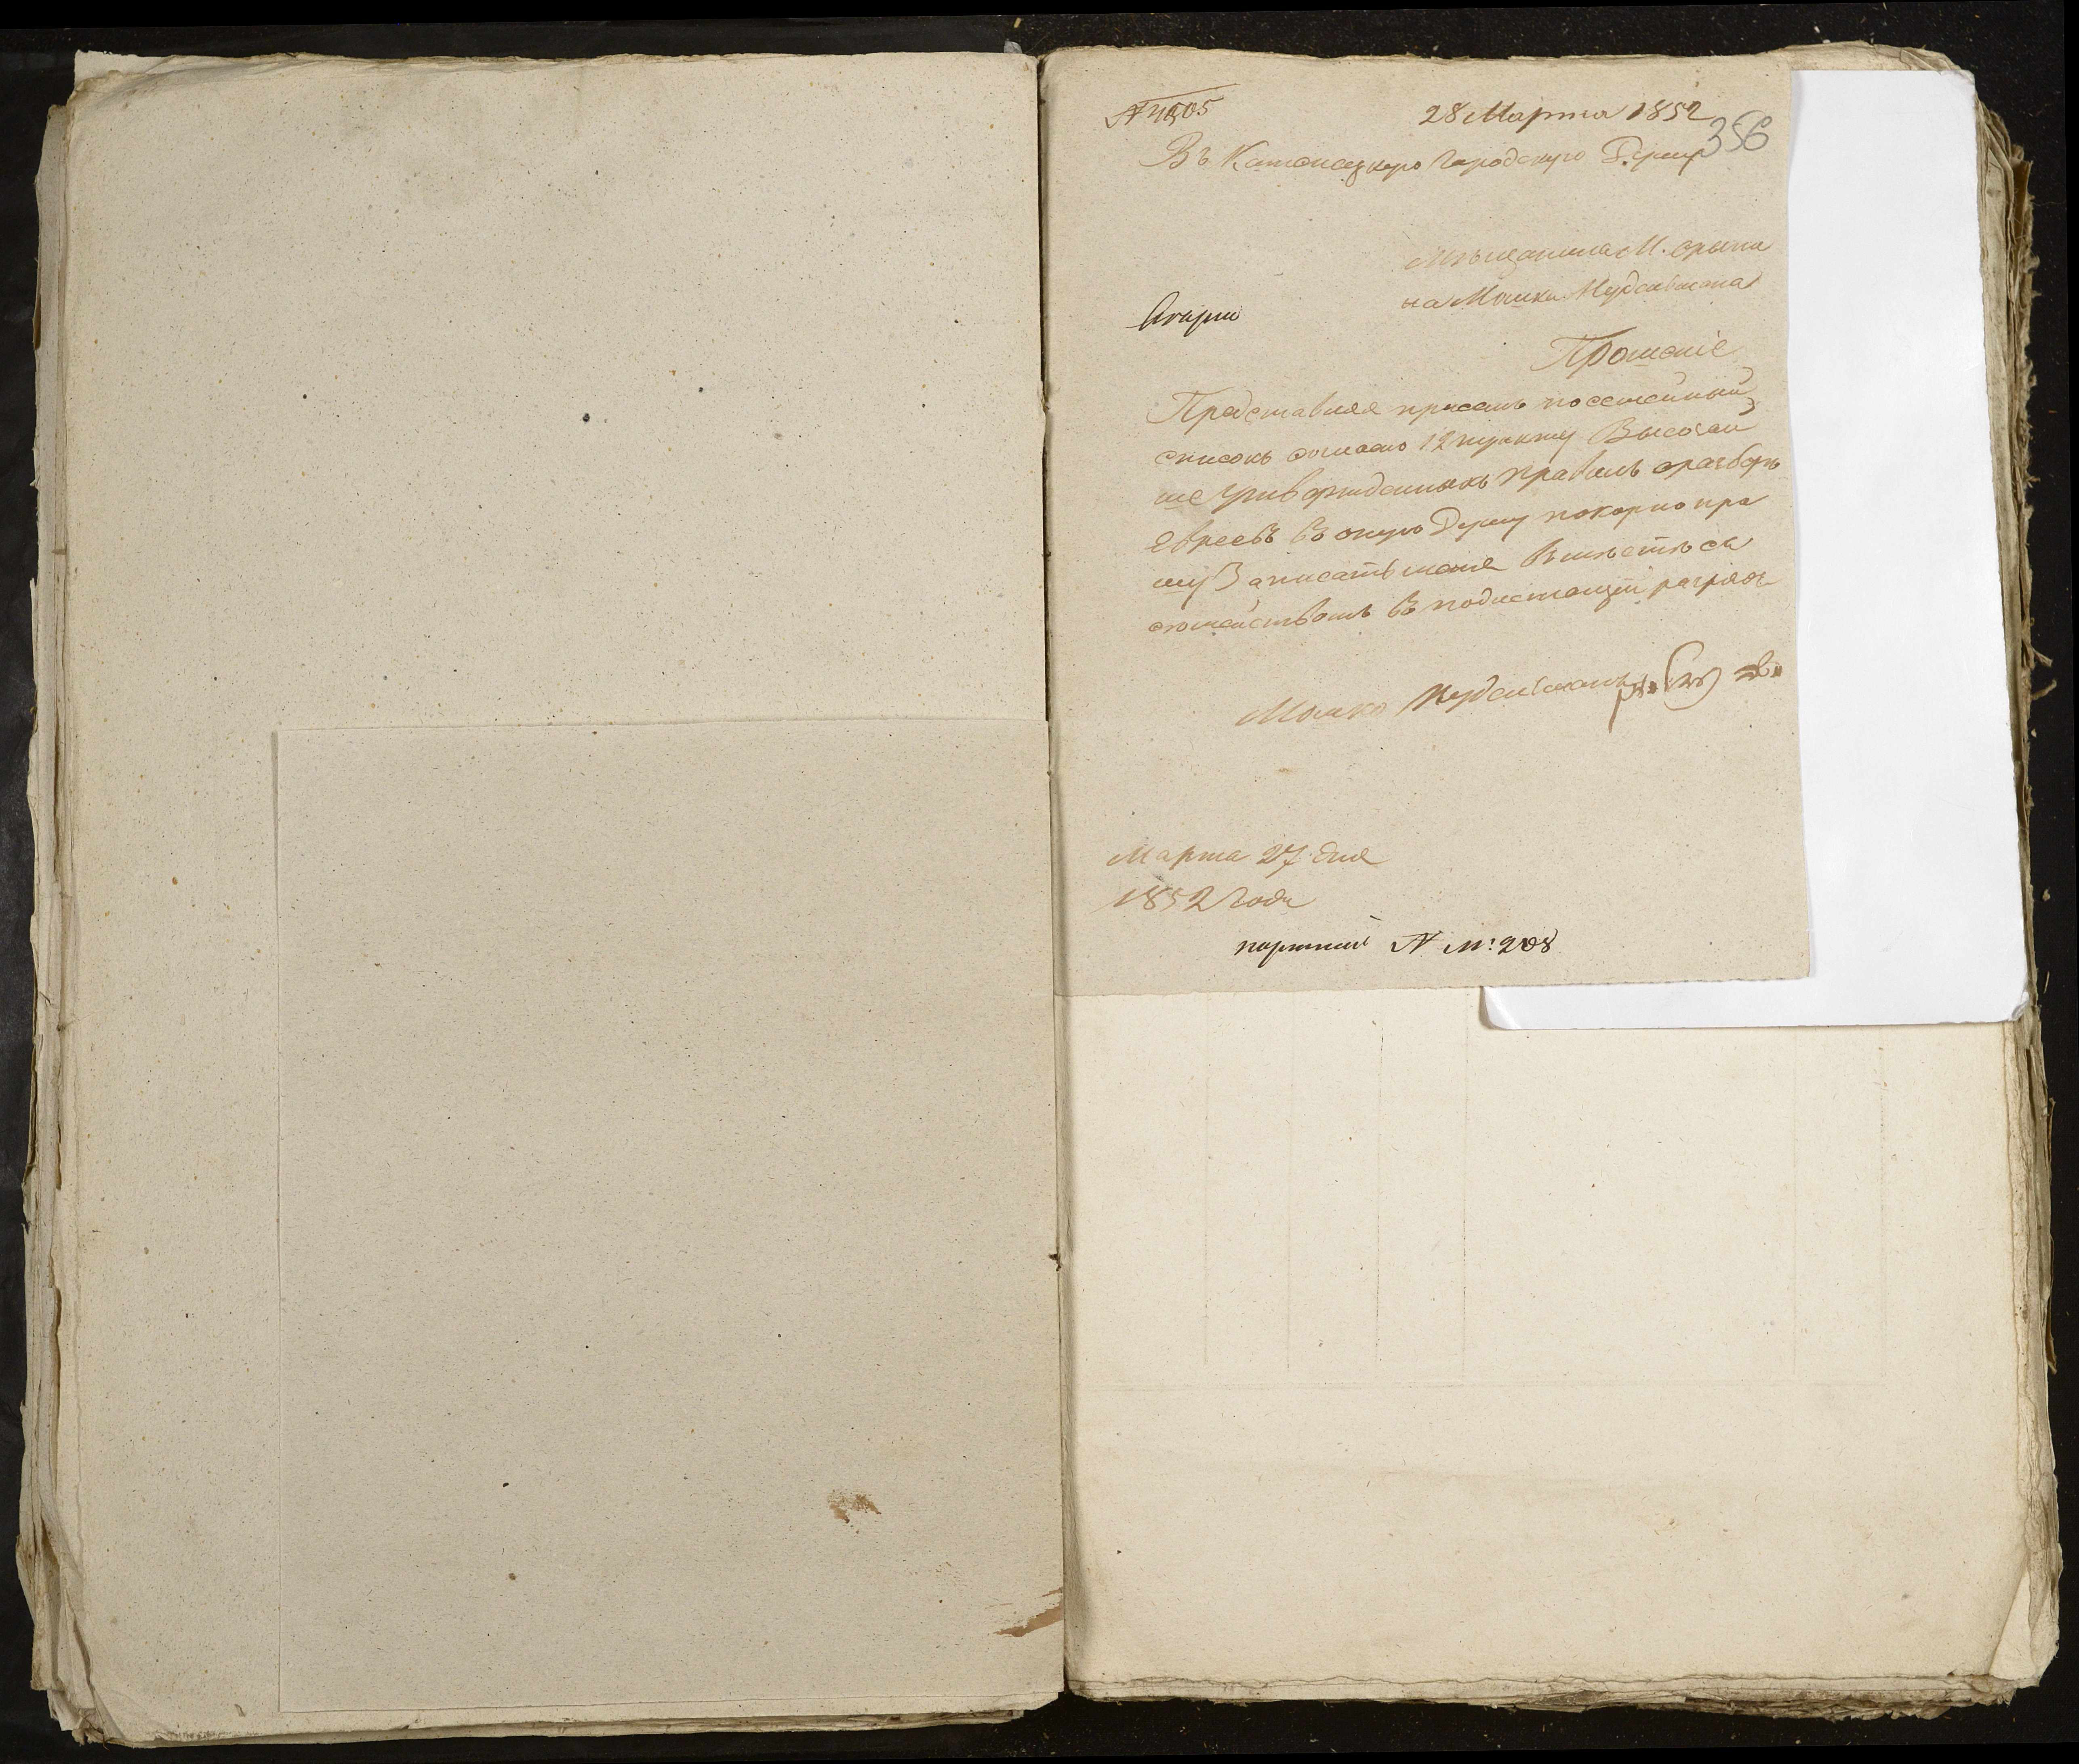 28 Марта 1852
356
Въ Каменецкую Городскую Думу
Мѣщанина М.
на Мошки Нудельмана
Прошеніе
Представляя присемъ посемейный
списокъ согласно 12 пункту Высочай
ше Утвержденныхъ Правилъ о разборѣ
Евреевъ въ оную Думу покорно про
шу Записать меня Вмѣстѣ съ
семействомъ въ подлежащій разрядъ
Мошко Нудельманъ
Марта 27 дня
1852 Года
№ 208